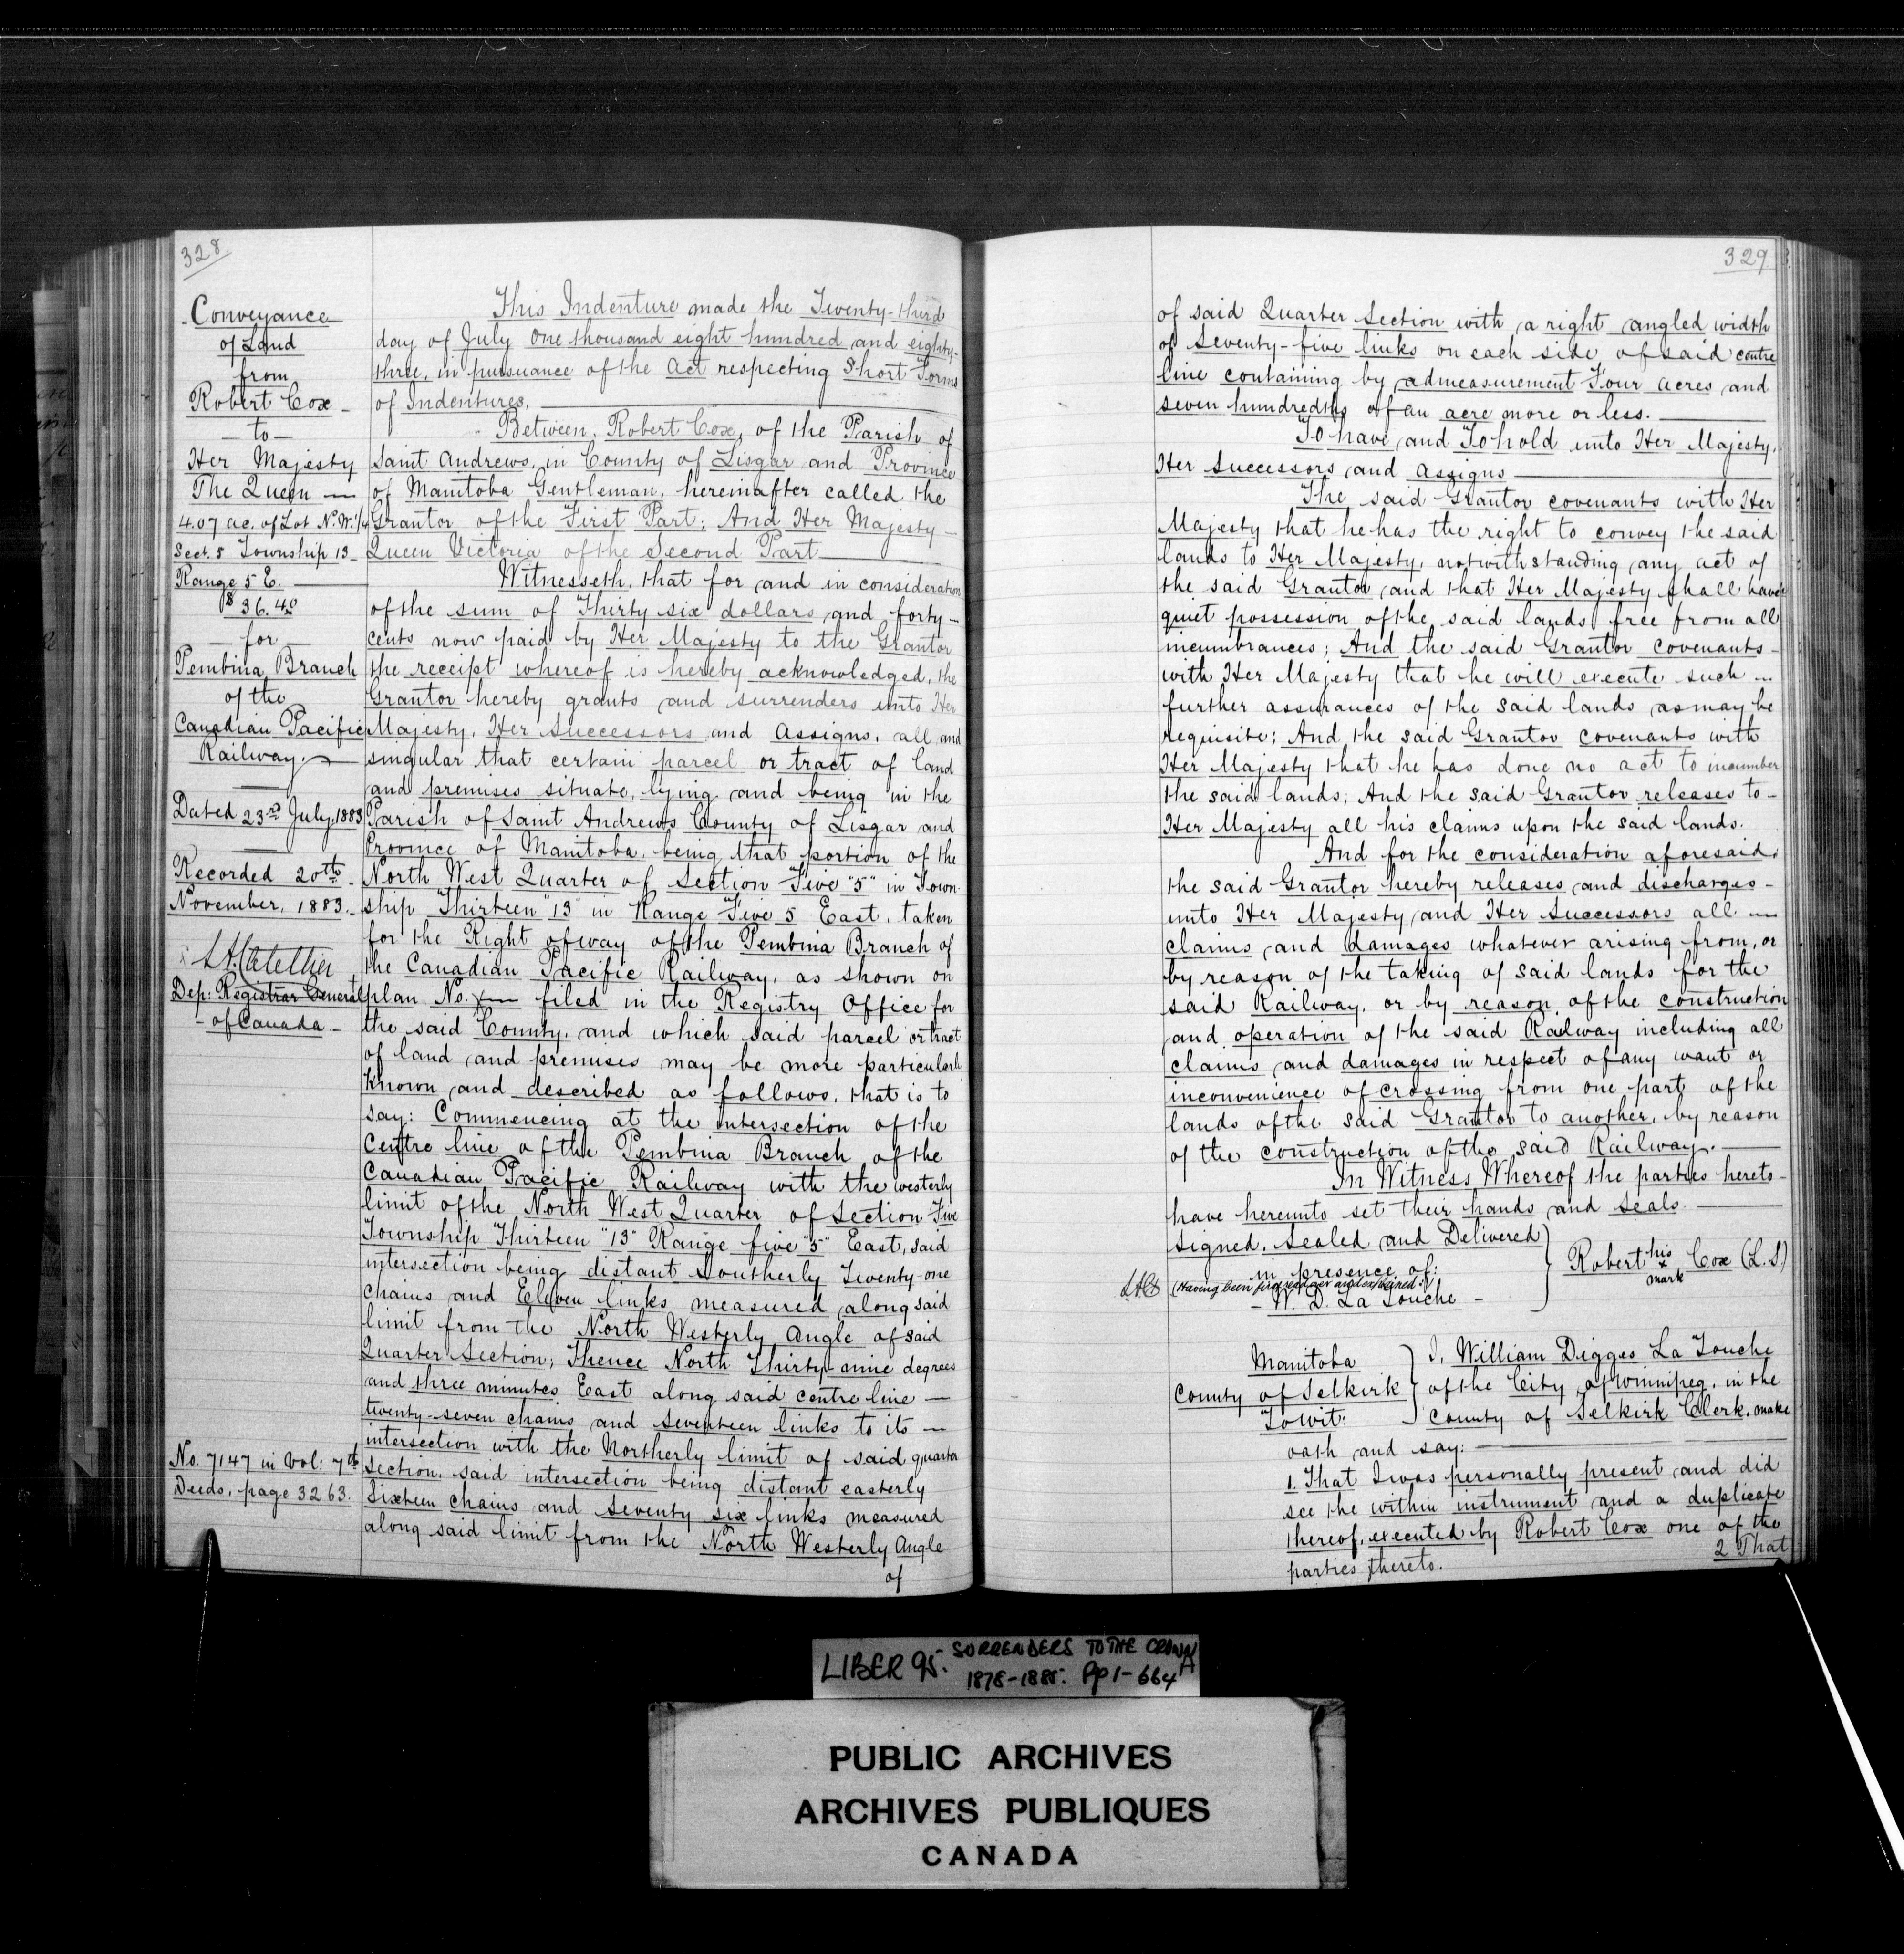 328
Conveyance
of Land
from
Robert Cox -
- to -
Her Majesty
The Queen —
4.07 ac. of Lot N.W. 1/4
Sect. 5 Township 13 -
Range 5 E. —
$36.40
- for -
Pembina Branch
of the
Canadian Pacific
Railway. —
Dated 23rd July, 1883
Recorded 20th
November, 1883. -
Dep: Registrar General
- of Canada -
No. 7147 in Vol: 7th
Deeds, page 3263.
This Indenture made the Twenty-third
day of July One thousand eight hundred and eighty-
three, in pursuance of the Act respecting Short Forms
of Indentures, —
Between, Robert Cox, of the Parish of
Saint Andrews, in County of Lisgar and Province
of Manitoba Gentleman, hereinafter called the
Grantor of the First Part; And Her Majesty -
Queen Victoria of the Second Part —
Witnesseth, that for and in consideration
of the sum of Thirty six dollars and forty -
cents now paid by Her Majesty to the Grantor
the receipt whereof is hereby acknowledged, the
Grantor hereby grants and surrenders unto Her
Majesty, Her Successors and Assigns, all and
singular that certain parcel or tract of land
and premises situate, lying and being in the
Parish of Saint Andrews County of Lisgar and
Province of Manitoba, being that portion of the
North West Quarter of Section Five "5" in Town-
ship Thirteen "13" in Range Five 5 East, taken
for the Right of way of the Pembina Branch of
the Canadian Pacific Railway, as shown on
plan No. — filed in the Registry Office for
the said County, and which said parcel or tract
of land and premises may be more particularly
known and described as follows, that is to
say: Commencing at the intersection of the
Centre line of the Pembina Branch of the
Canadian Pacific Railway with the westerly
limit of the North West Quarter of Section Five
Township Thirteen "13" Range five "5" East, said
intersection being distant Southerly Twenty-one
chains and Eleven links measured along said
limit from the North Westerly Angle of said
Quarter Section; Thence North Thirty-nine degrees
and three minutes East along said centre line —
twenty-seven chains and seventeen links to its —
intersection with the Northerly limit of said quarter
Section, said intersection being distant easterly
Sixteen chains and Seventy six links measured
along said limit from the North Westerly Angle
of
329
of said Quarter Section with a right angled width
of Seventy-five links on each side of said centre
line containing by admeasurement Four acres and
seven hundredths of an acre more or less. —
To have and To hold unto Her Majesty,
Her Successors and Assigns —
The said Grantor covenants with Her
Majesty that he has the right to convey the said
lands to Her Majesty, notwithstanding any act of
the said Grantor and that Her Majesty shall have
quiet possession of the said lands free from all
incumbrances; And the said Grantor covenants -
with Her Majesty that he will execute such —
further assurances of the said lands as may be
requisite; And the said Grantor covenants with
Her Majesty that he has done no act to incumber
the said lands; And the said Grantor releases to -
Her Majesty all his claims upon the said lands.
And for the consideration aforesaid,
the said Grantor hereby releases and discharges -
unto Her Majesty and Her Successors all —
claims and damages whatever arising from, or
by reason of the taking of said lands for the
said Railway, or by reason of the construction
and operation of the said Railway including all
claims and damages in respect of any want or
inconvenience of crossing from one part of the
lands of the said Grantor to another, by reason
of the construction of the said Railway. —
In Witness Whereof the parties hereto -
have hereunto set their hands and seals. —
Signed, Sealed and Delivered
in presence of:
(Having been first read over and explained.)
- W. D. La Touche -
Robert his x mark Cox (L.S)
Manitoba
County of Selkirk
To wit:
I, William Digges La Touche
of the City of Winnipeg, in the
County of Selkirk Clerk, make
oath and say: —
1. That I was personally present and did
see the within instrument and a duplicate
thereof, executed by Robert Cox one of the
parties thereto.
2 That
LIBER 95. SURRENDERS TO THE CROWN
1878-1885. Pp 1-664A
PUBLIC ARCHIVES
ARCHIVES PUBLIQUES
CANADA